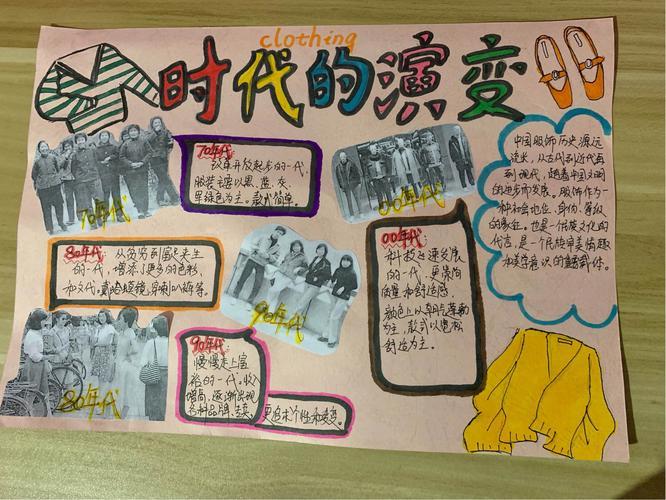 clothing
时代的演变
70年代
改革开放起步的一代,
服装主要以黑、蓝、灰、
军绿色为主。款式简单。
70年代
00年代
中国服饰历史源远
流长,从古代到近代再
到现代,随着中国文明
的进步而发展。服饰作为
一种社会地位、身份、等级
的象征。也是一个民族文化的
代言,是一个民族审美情趣
和美学意识的
80年代
从贫穷到富足走生
的一代,增添了更多的色彩,
和文化。戴哈蟆镜,穿喇叭裤等。
90年代
00年代
科技高速发展
的一代,更崇尚
质量和舒适感
颜色上以明亮薄动
为主,款式以宽松
舒适为主。
80年代
90年代:
慢慢走上富
裕的一代。收入
增高,逐渐出现
各种品牌,
更追求个性和